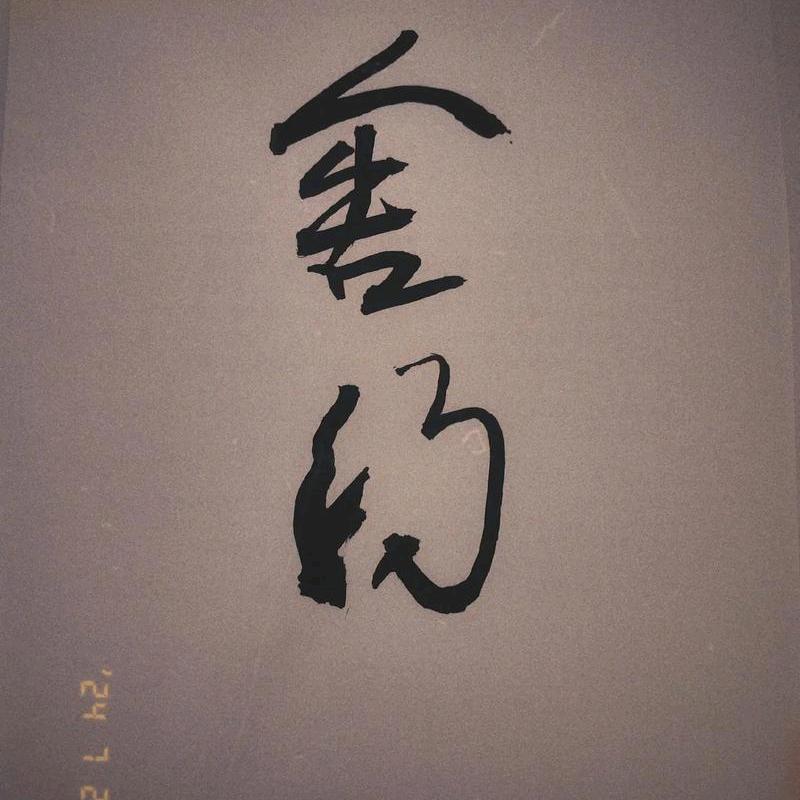 舍
得
'24 7 2